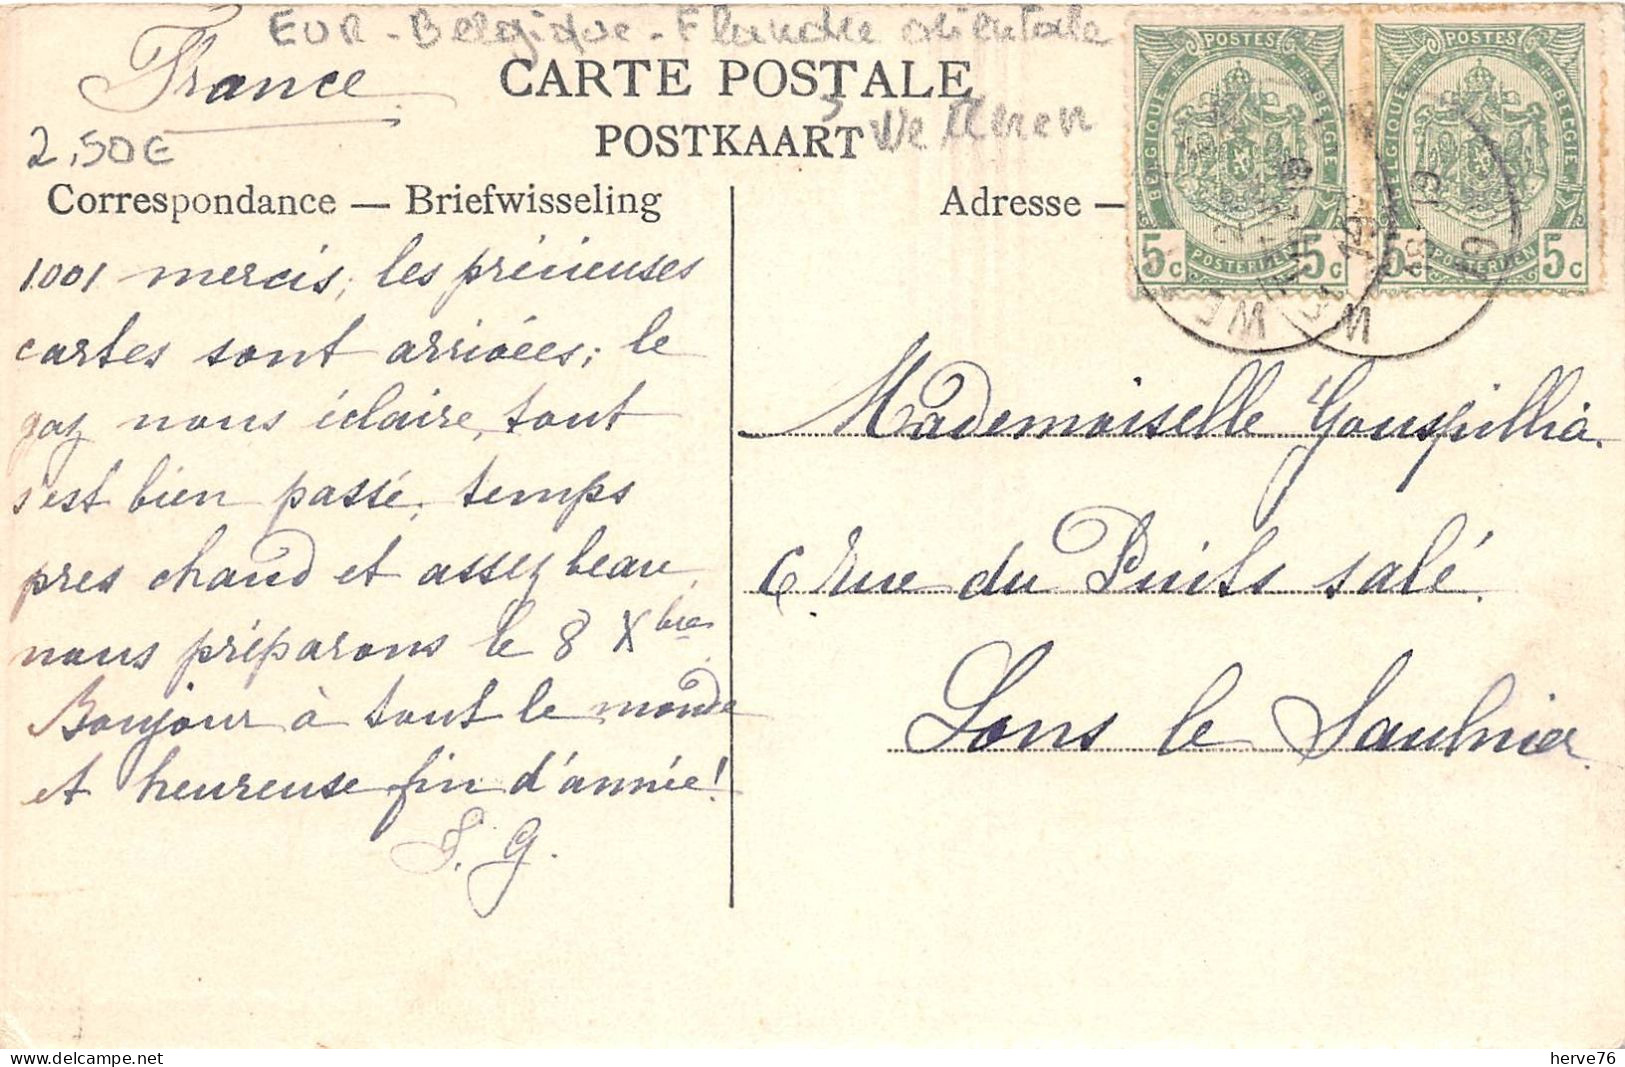 EUR - Belgique - Flandre orientale
France
CARTE POSTALE
2,50€
POSTKAART
Wetteren
Correspondance — Briefwisseling
Adresse —
POSTES
BELGIQUE BELGIE
5c POSTERIJEN 5c
POSTES
BELGIQUE BELGIE
5c POSTERIJEN 5c
1001 mercis, les précieuses
cartes sont arrivées; le
gaz nous éclaire, tout
s'est bien passé, temps
pres chaud et assez beau,
nous préparons le 8 Xbre
Bonjour à tout le monde
et heureuse fin d'année!
S. G.
Mademoiselle
6 rue du Puits salé.
Lons le Saulnier
herve76